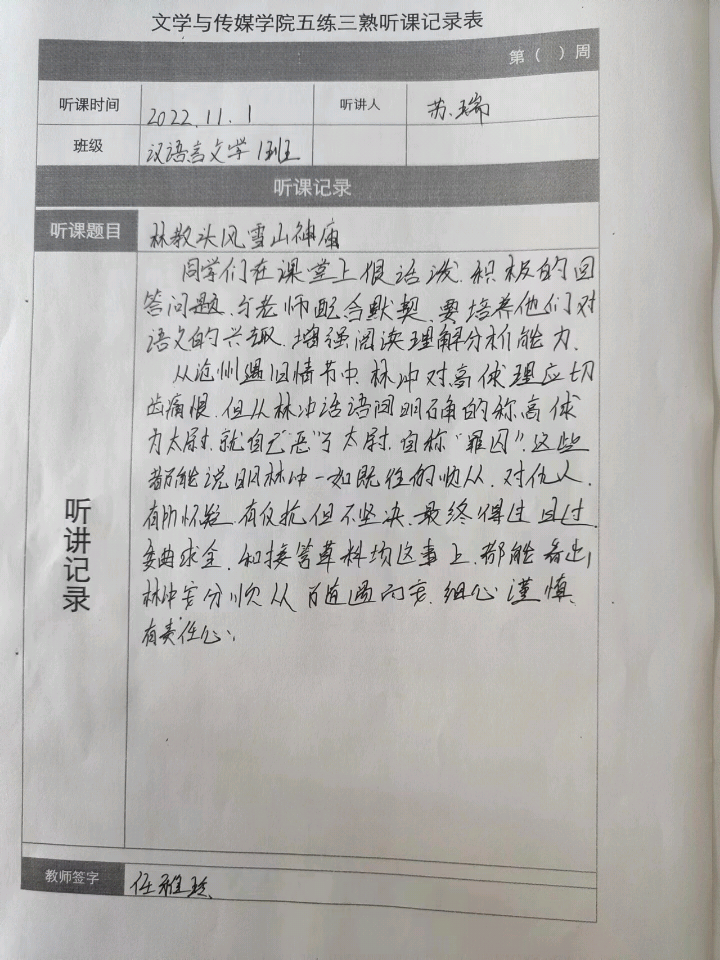 文学与传媒学院五练三熟听课记录表
第（ ）周
听课时间 2022.11.1 听讲人 苏瑞
班级 汉语言文学1班
听课记录
听课题目 林教头风雪山神庙
听讲记录
同学们在课堂上很活泼，积极的回
答问题，与老师配合默契，要培养他们对
语文的兴趣，增强阅读理解分析能力。
从沧州遇旧情节中，林冲对高俅理应切
齿痛恨，但从林冲话语间明确的称高俅
为太尉，就自己"恶"了太尉，自称"罪囚"，这些
都能说明林冲一如既往的顺从，对仇人，
有所怀疑，有反抗但不坚决，最终得过且过
委曲求全，和接管草料场这事上，都能看出，
林冲安分顺从 而 细心谨慎，
有责任心。
教师签字 任雅